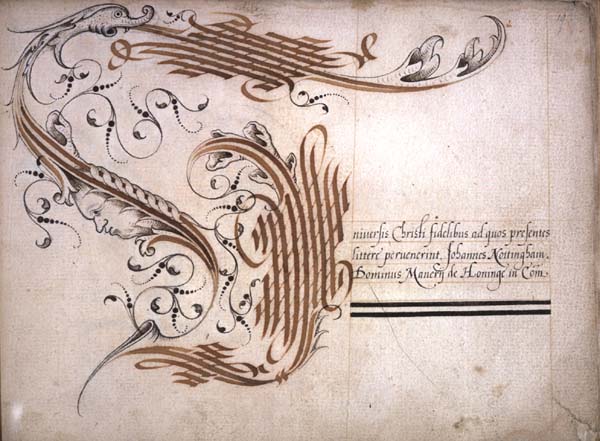 niuersis Christi fidelibus ad quos presentes
littere peruenerint, Johannes Nottingham,
Dominus Manerij de Honinge in Com.